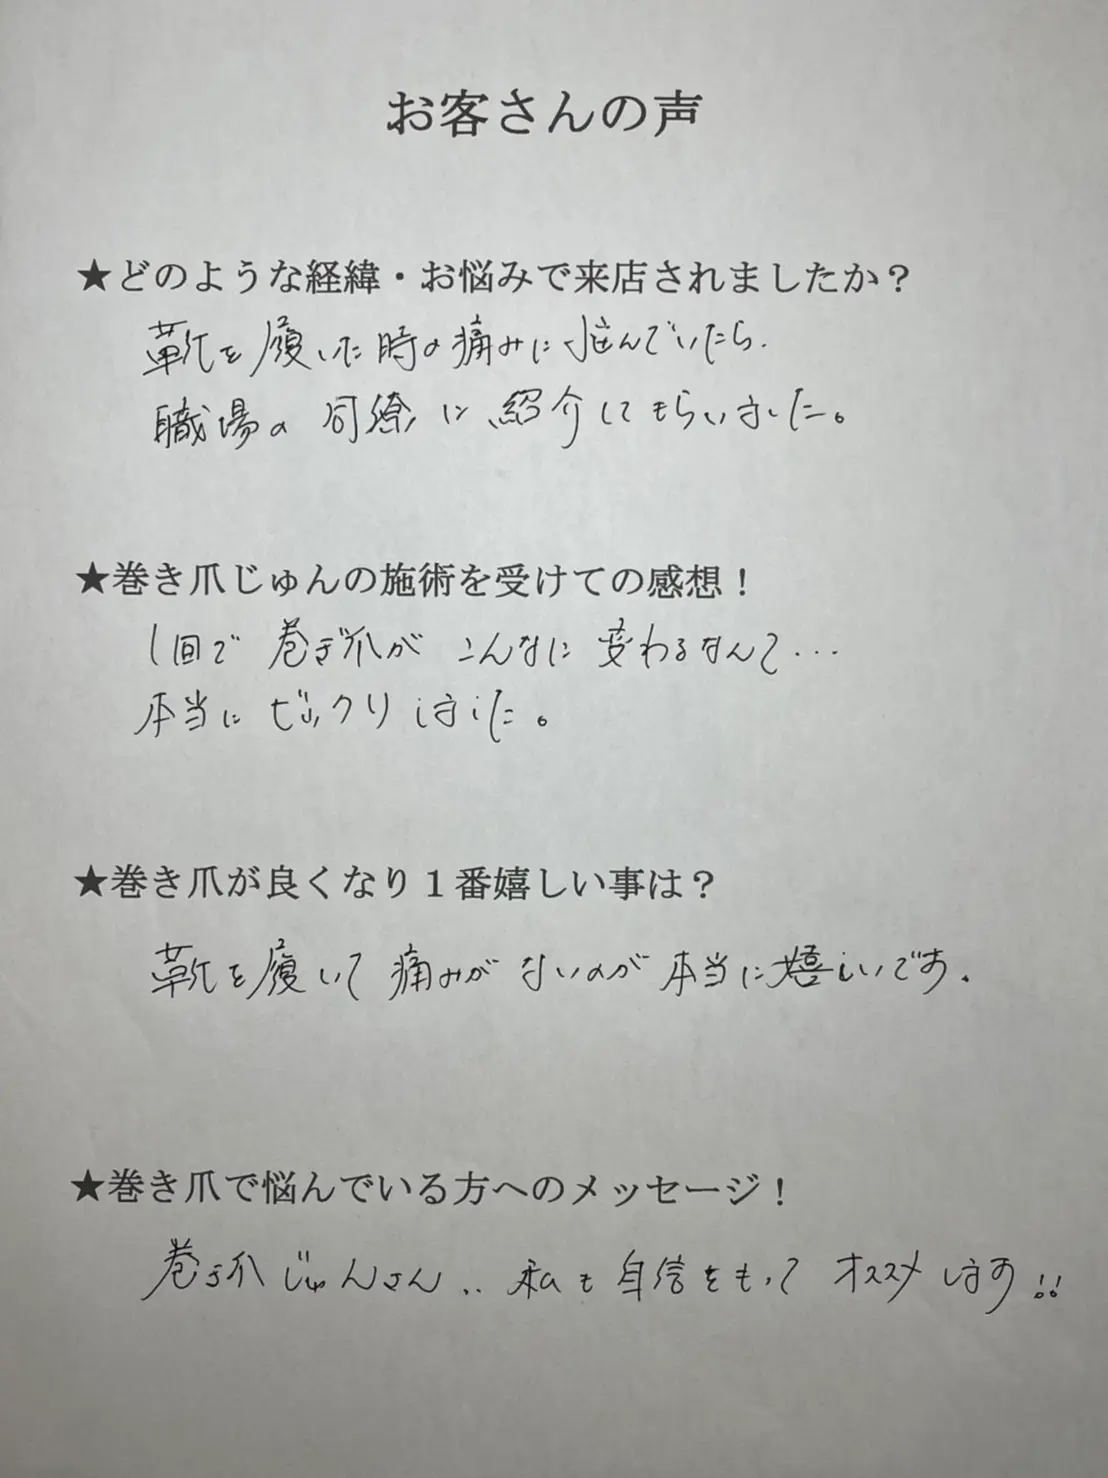 お客さんの声
★どのような経緯・お悩みで来店されましたか？
靴を履いた時の痛みに悩んでいたら.
職場の同僚に紹介してもらいました。
★巻き爪じゅんの施術を受けての感想！
1回で巻き爪がこんなに変わるなんて...
本当にビックリしました。
★巻き爪が良くなり１番嬉しい事は？
靴を履いて痛みがないのが本当に嬉しいです.
★巻き爪で悩んでいる方へのメッセージ！
巻き爪じゅんさん..私も自信をもってオススメします!!